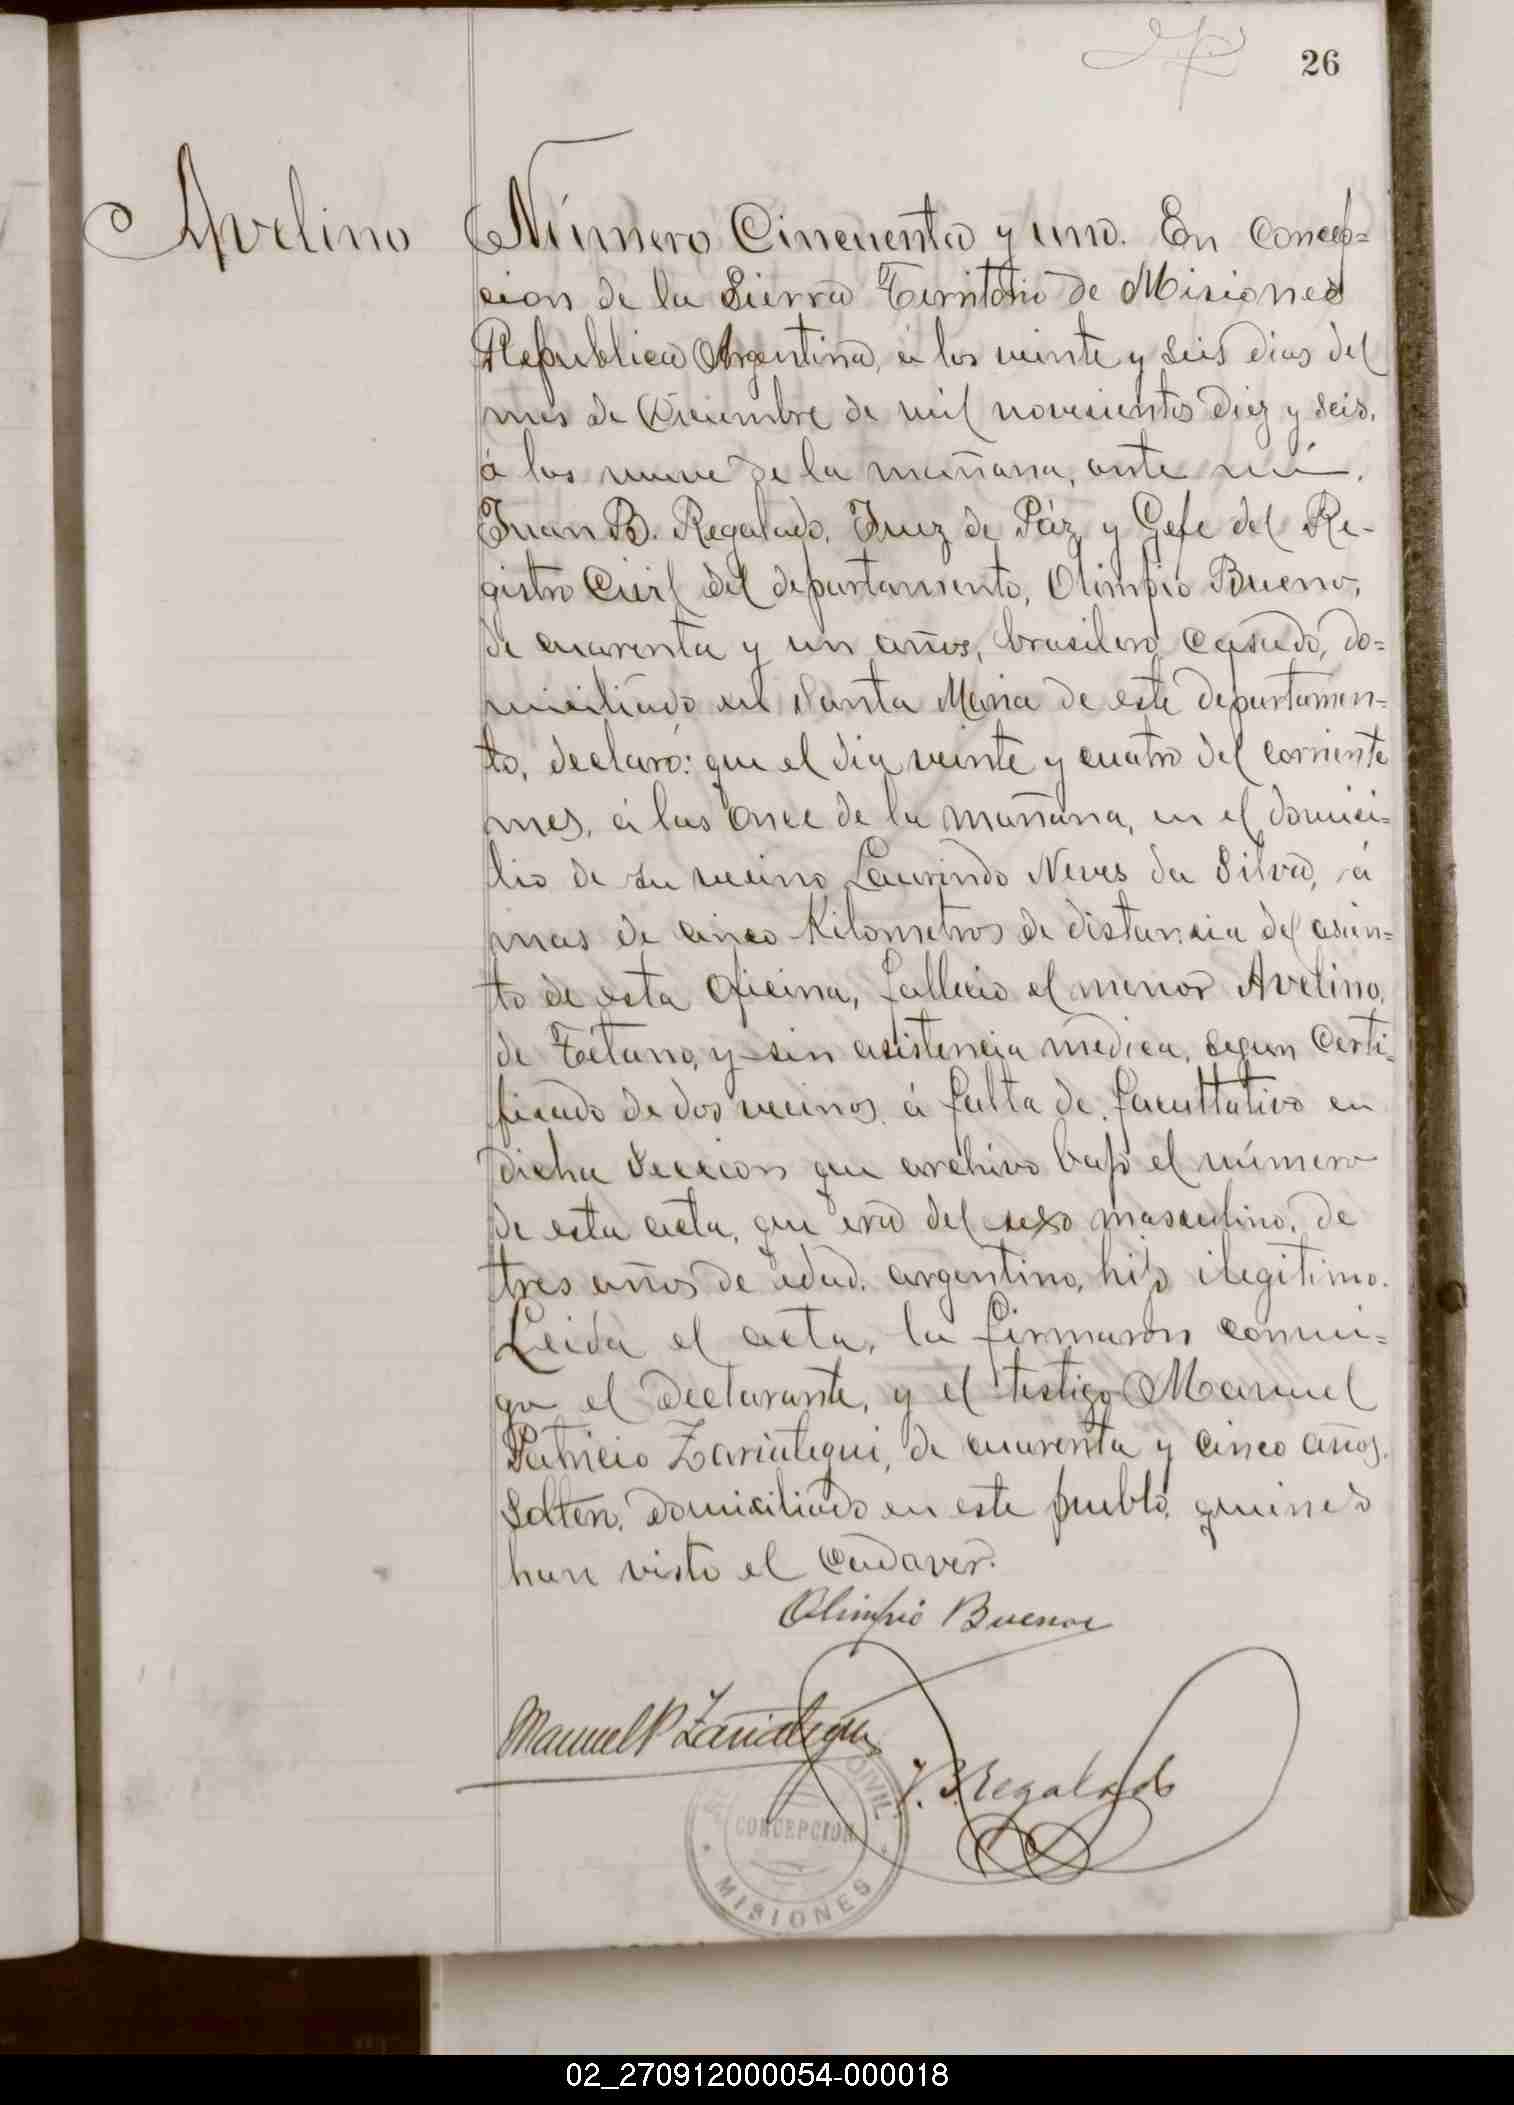 26
Avelino
Número Cincuenta y uno. En Concep=
cion de la Sierra Territorio de Misiones
Republica Argentina, á los veinte y seis dias del
mes de Diciembre de mil novecientos diez y seis,
á las nueve de la mañana, ante mí,
Juan B. Regalado, Juez de Páz y Gefe del Re-
gistro Civil del departamento, Olimpio Bueno,
de cuarenta y un años, brasilero, casado, do=
miciliado en Santa Maria de este departamen=
to, declaró: que el dia veinte y cuatro del corriente
mes, á las once de la mañana, en el domici=
lio de su vecino Laurindo Neves da Silva, á
mas de cinco Kilometros de distancia del asien=
to de esta Oficina, fallecio el menor Avelino,
de Tétano, y sin asistencia medica, segun Certi=
ficado de dos vecinos á falta de facultativo en
dicha Seccion que archivo bajo el número
de esta acta, que era del sexo masculino, de
tres años de edad, argentino, hijo ilegitimo.
Leida el acta, la firmaron conmi=
go el declarante, y el testigo Manuel
Patricio Zariategui, de cuarenta y cinco años,
soltero, domiciliado en este pueblo, quienes
han visto el cadaver.
Olimpio Bueno
Manuel P Zariategui
J. B. Regalado
CIVIL
CONCEPCION
MISIONES
02_270912000054-000018